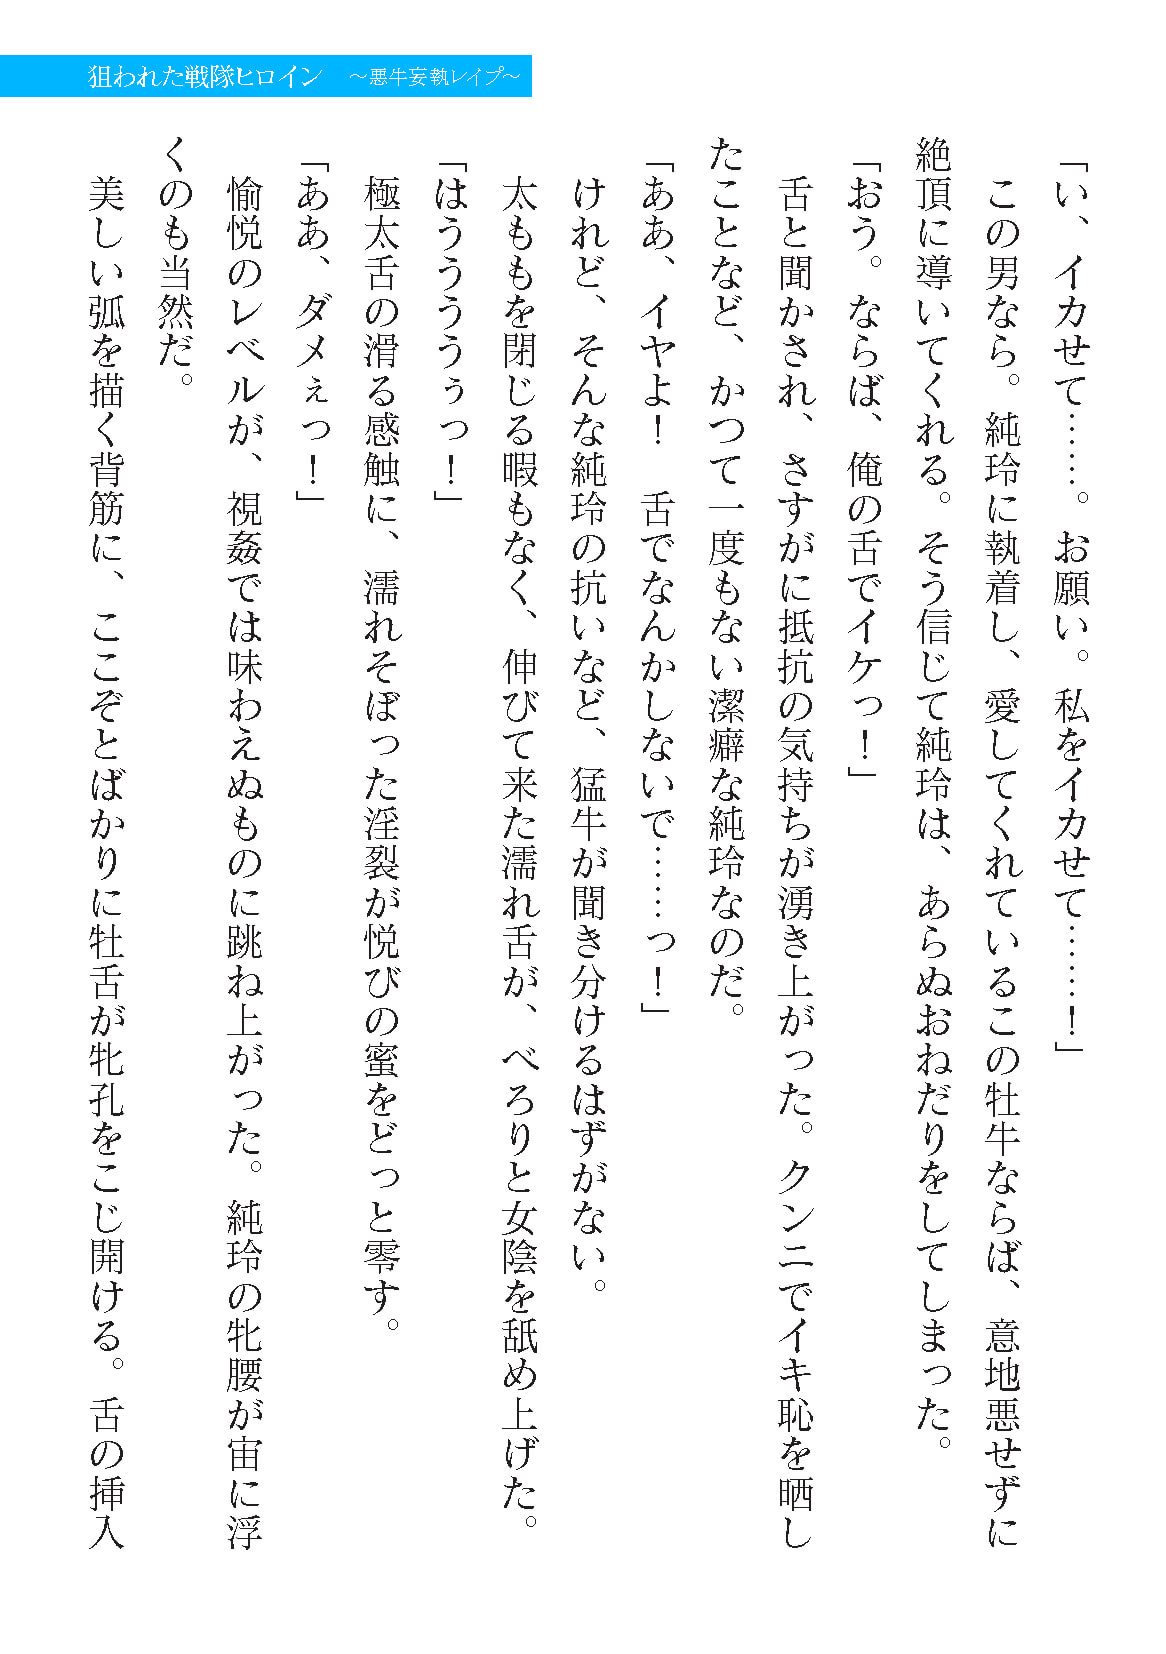 狙われた戦隊ヒロイン　～悪牛妄執レイプ～
「い、イカせて……。お願い。私をイカせて……！」
　この男なら。純玲に執着し、愛してくれているこの牡牛ならば、意地悪せずに
絶頂に導いてくれる。そう信じて純玲は、あらぬおねだりをしてしまった。
「おう。ならば、俺の舌でイケっ！」
　舌と聞かされ、さすがに抵抗の気持ちが湧き上がった。クンニでイキ恥を晒し
たことなど、かつて一度もない潔癖な純玲なのだ。
「ああ、イヤよ！　舌でなんかしないで……っ！」
　けれど、そんな純玲の抗いなど、猛牛が聞き分けるはずがない。
　太ももを閉じる暇もなく、伸びて来た濡れ舌が、べろりと女陰を舐め上げた。
「はうううぅっ！」
　極太舌の滑る感触に、濡れそぼった淫裂が悦びの蜜をどっと零す。
「ああ、ダメぇっ！」
　愉悦のレベルが、視姦では味わえぬものに跳ね上がった。純玲の牝腰が宙に浮
くのも当然だ。
　美しい弧を描く背筋に、ここぞとばかりに牡舌が牝孔をこじ開ける。舌の挿入